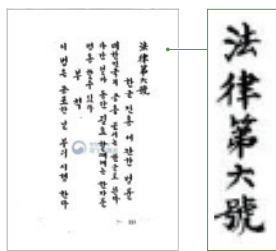 法律第六號
한글 전용에 관한 법률
대한민국의 공용 문서는 한글로 쓴다
다만 얼마 동안 필요한 때에는 한자를
병용할 수 있다
부칙
이 법은 공포한 날부터 시행한다
法律第六號